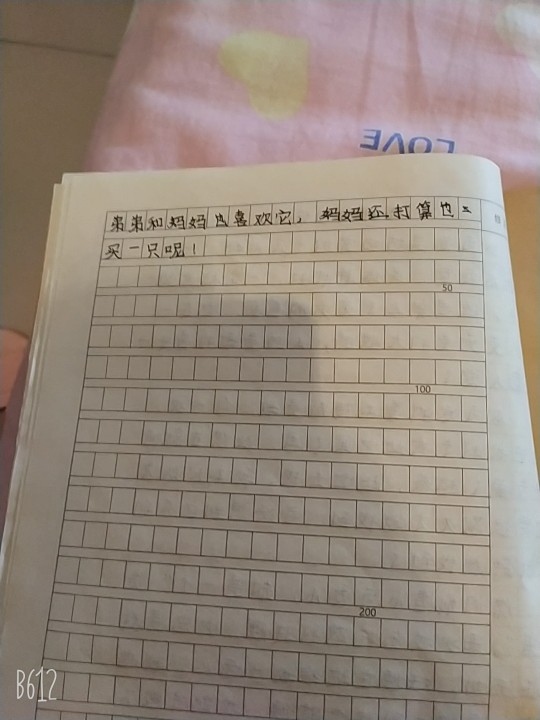 LOVE
弟弟和妈妈也喜欢它，妈妈还打算也
买一只呢！
50
100
200
B612